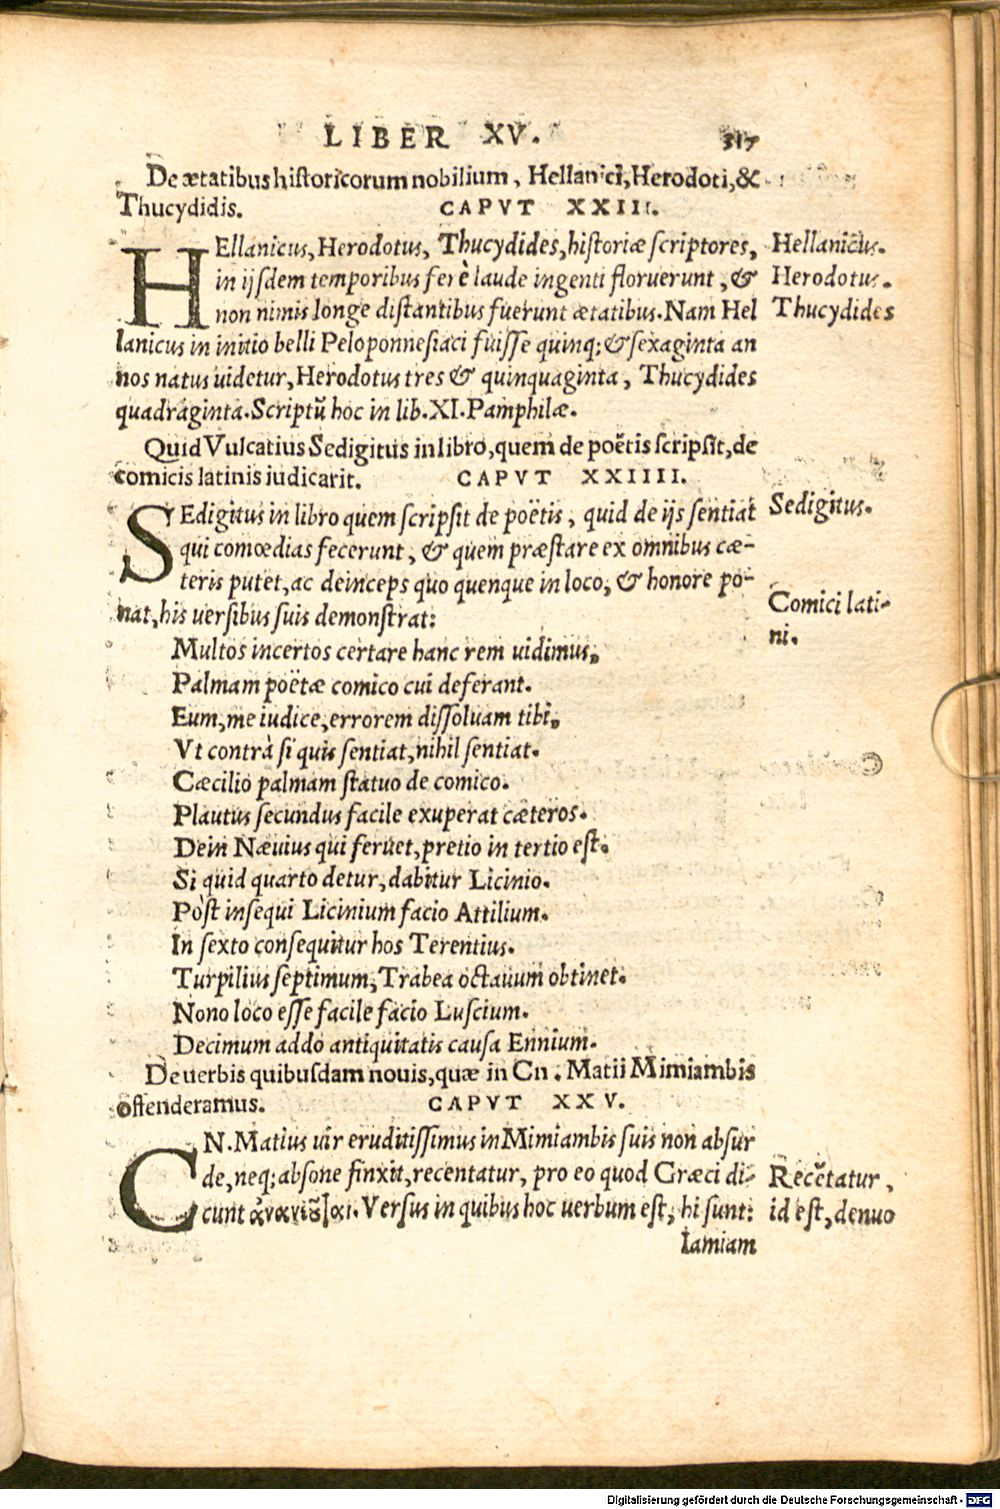 LIBER XV. 317
De ætatibus historicorum nobilium, Hellanici, Herodoti, &
Thucydidis. CAPVT XXIII.
HEllanicus, Herodotus, Thucydides, historiæ scriptores,
in ijsdem temporibus ferè laude ingenti floruerunt, &
non nimis longe distantibus fuerunt ætatibus. Nam Hel
lanicus in initio belli Peloponnesiaci fuisse quinq; & sexaginta an
nos natus uidetur, Herodotus tres & quinquaginta, Thucydides
quadraginta. Scriptũ hoc in lib. XI. Pamphilæ.
Hellanicus.
Herodotus.
Thucydides
Quid Vulcatius Sedigitus in libro, quem de poëtis scripsit, de
comicis latinis iudicarit. CAPVT XXIIII.
SEdigitus in libro quem scripsit de poëtis, quid de ijs sentiat
qui comœdias fecerunt, & quem præstare ex omnibus cæ-
teris putet, ac deinceps quo quenque in loco, & honore po-
nat, his uersibus suis demonstrat:
Sedigitus.
Comici lati-
ni.
Multos incertos certare hanc rem uidimus,
Palmam poëtæ comico cui deferant.
Eum, me iudice, errorem dissoluam tibi,
Vt contrà si quis sentiat, nihil sentiat.
Cæcilio palmam statuo de comico.
Plautus secundus facile exuperat cæteros.
Dein Næuius qui feruet, pretio in tertio est.
Si quid quarto detur, dabitur Licinio.
Pòst insequi Licinium facio Attilium.
In sexto consequitur hos Terentius.
Turpilius septimum, Trabea octauum obtinet.
Nono loco esse facile facio Luscium.
Decimum addo antiquitatis causa Ennium.
De uerbis quibusdam nouis, quæ in Cn. Matii Mimiambis
ostenderamus. CAPVT XXV.
CN. Matius uir eruditissimus in Mimiambis suis non absur
de, neq; absone finxit, recentatur, pro eo quod Græci di-
cunt ἀνανεοῦται. Versus in quibus hoc uerbum est, hi sunt:
Recẽtatur,
id est, denuo
Iamiam
Digitalisierung gefördert durch die Deutsche Forschungsgemeinschaft - DFG